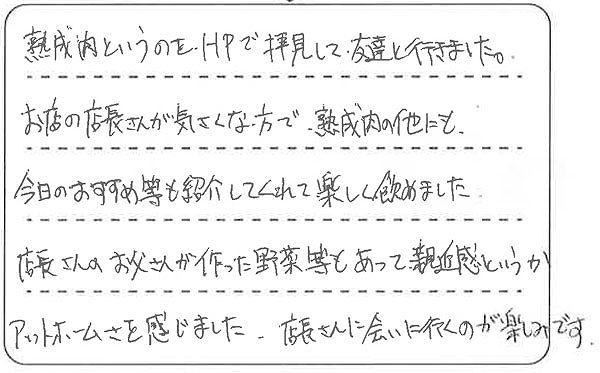 熟成肉というのを、HPで拝見して、友達と行きました。
お店の店長さんが気さくな方で、熟成肉の他にも、
今日のおすすめ等も紹介してくれて楽しく飲めました
店長さんのお父さんが作った野菜等もあって親近感というか
アットホームさを感じました。店長さんに会いに行くのが楽しみです.